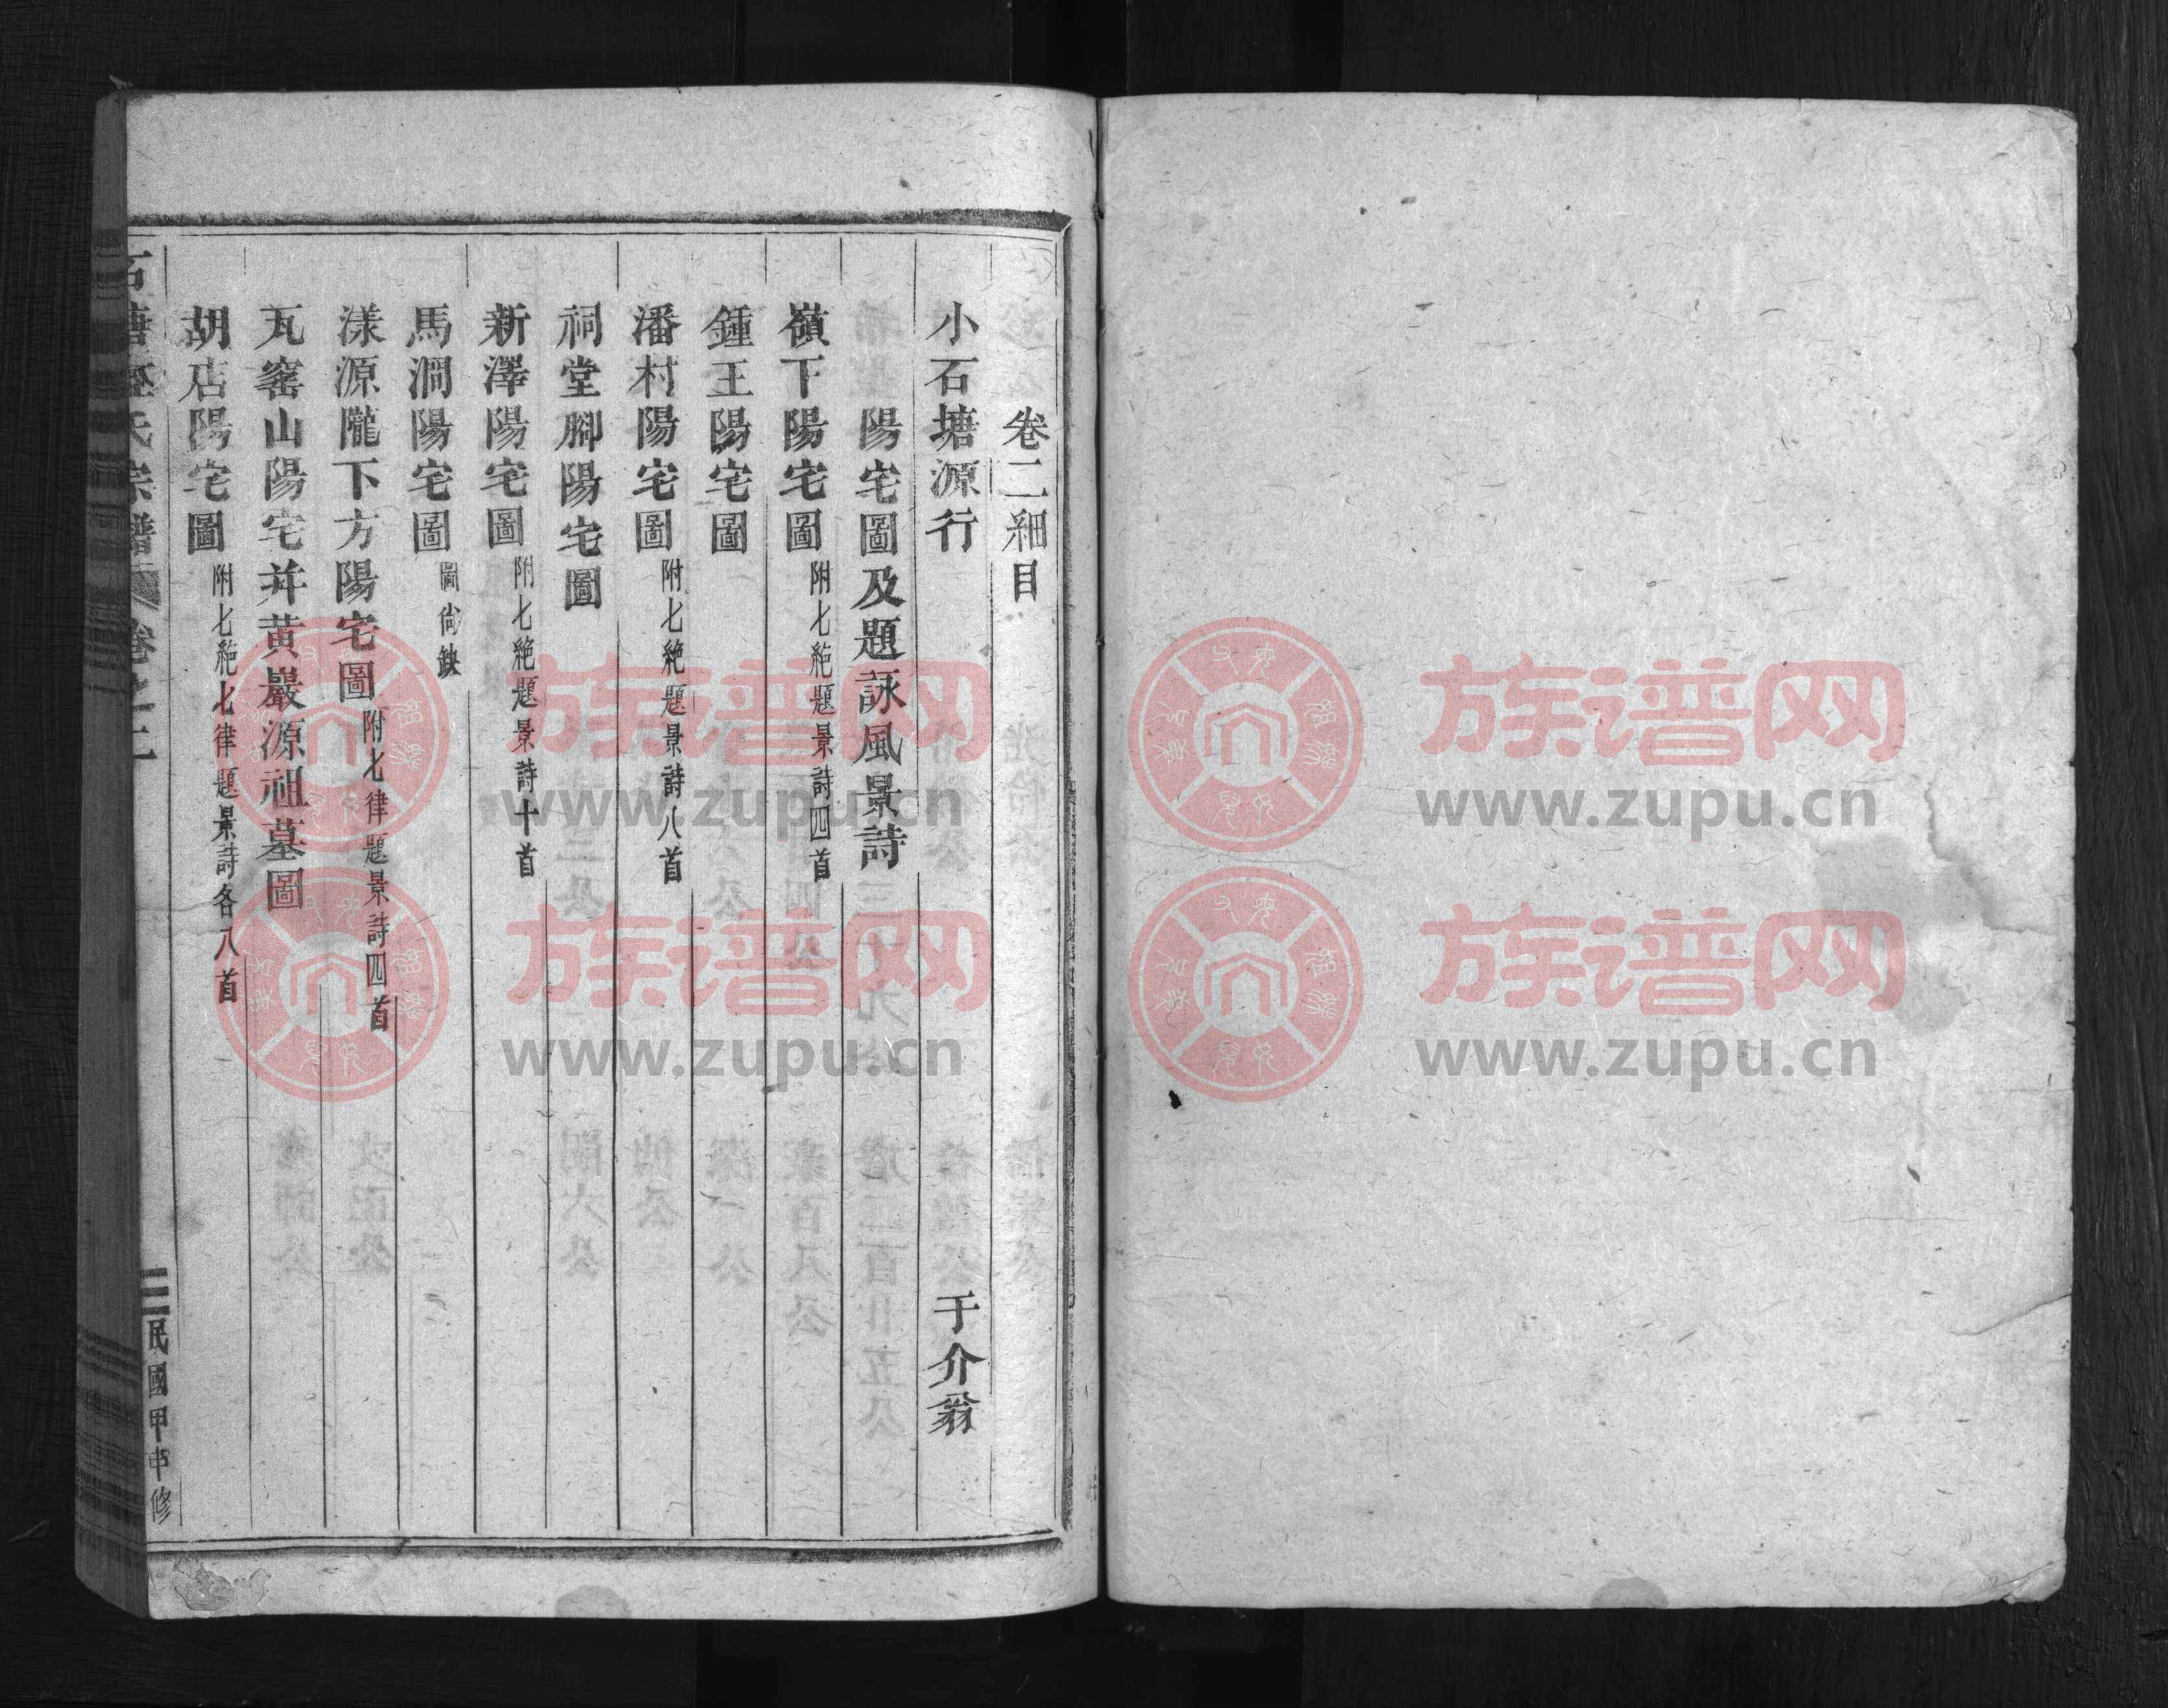 卷二細目
小石塘源行 于介翁
陽宅圖及題詠風景詩
嶺下陽宅圖 附七絶題景詩四首
鍾王陽宅圖
潘村陽宅圖 附七絶題景詩八首
祠堂腳陽宅圖
新澤陽宅圖 附七絶題景詩十首
馬澗陽宅圖 圖尙缺
漾源隴下方陽宅圖 附七律題景詩四首
瓦窰山陽宅并黄巖源祖墓圖
胡店陽宅圖 附七絶七律題景詩各八首
石塘 氏宗譜 卷之二 二 民國甲申修
族谱网
www.zupu.cn
族谱网
www.zupu.cn
族谱网
www.zupu.cn
族谱网
www.zupu.cn